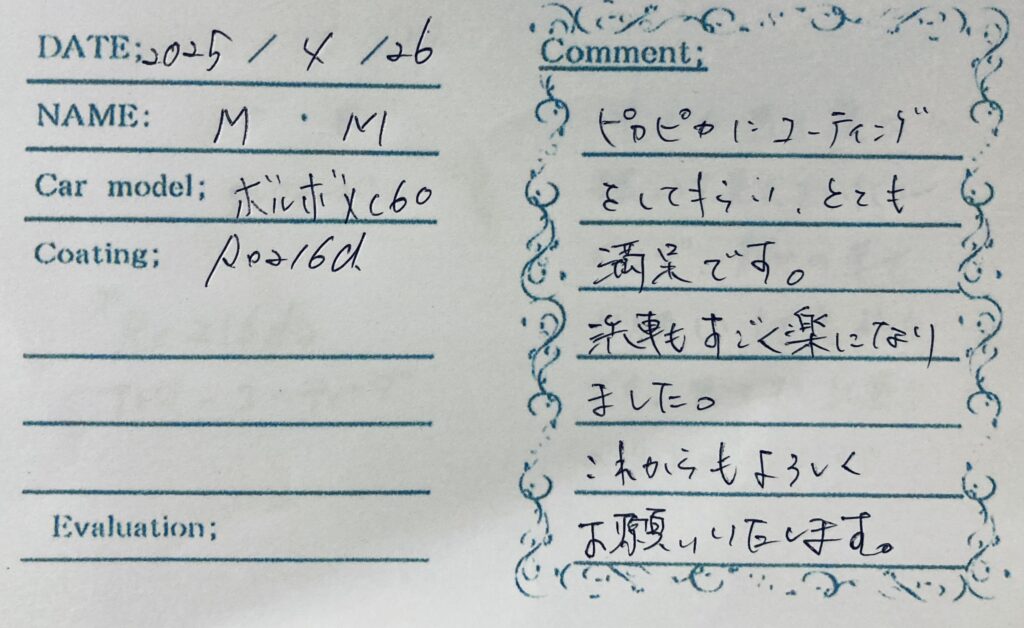 DATE; 2025 / 4 / 26
NAME: M・M
Car model; ボルボXC60
Coating;
Evaluation;
Comment;
ピカピカにコーティング
をしてもらい、とても
満足です。
洗車もすごく楽になり
ました。
これからもよろしく
お願いいたします。